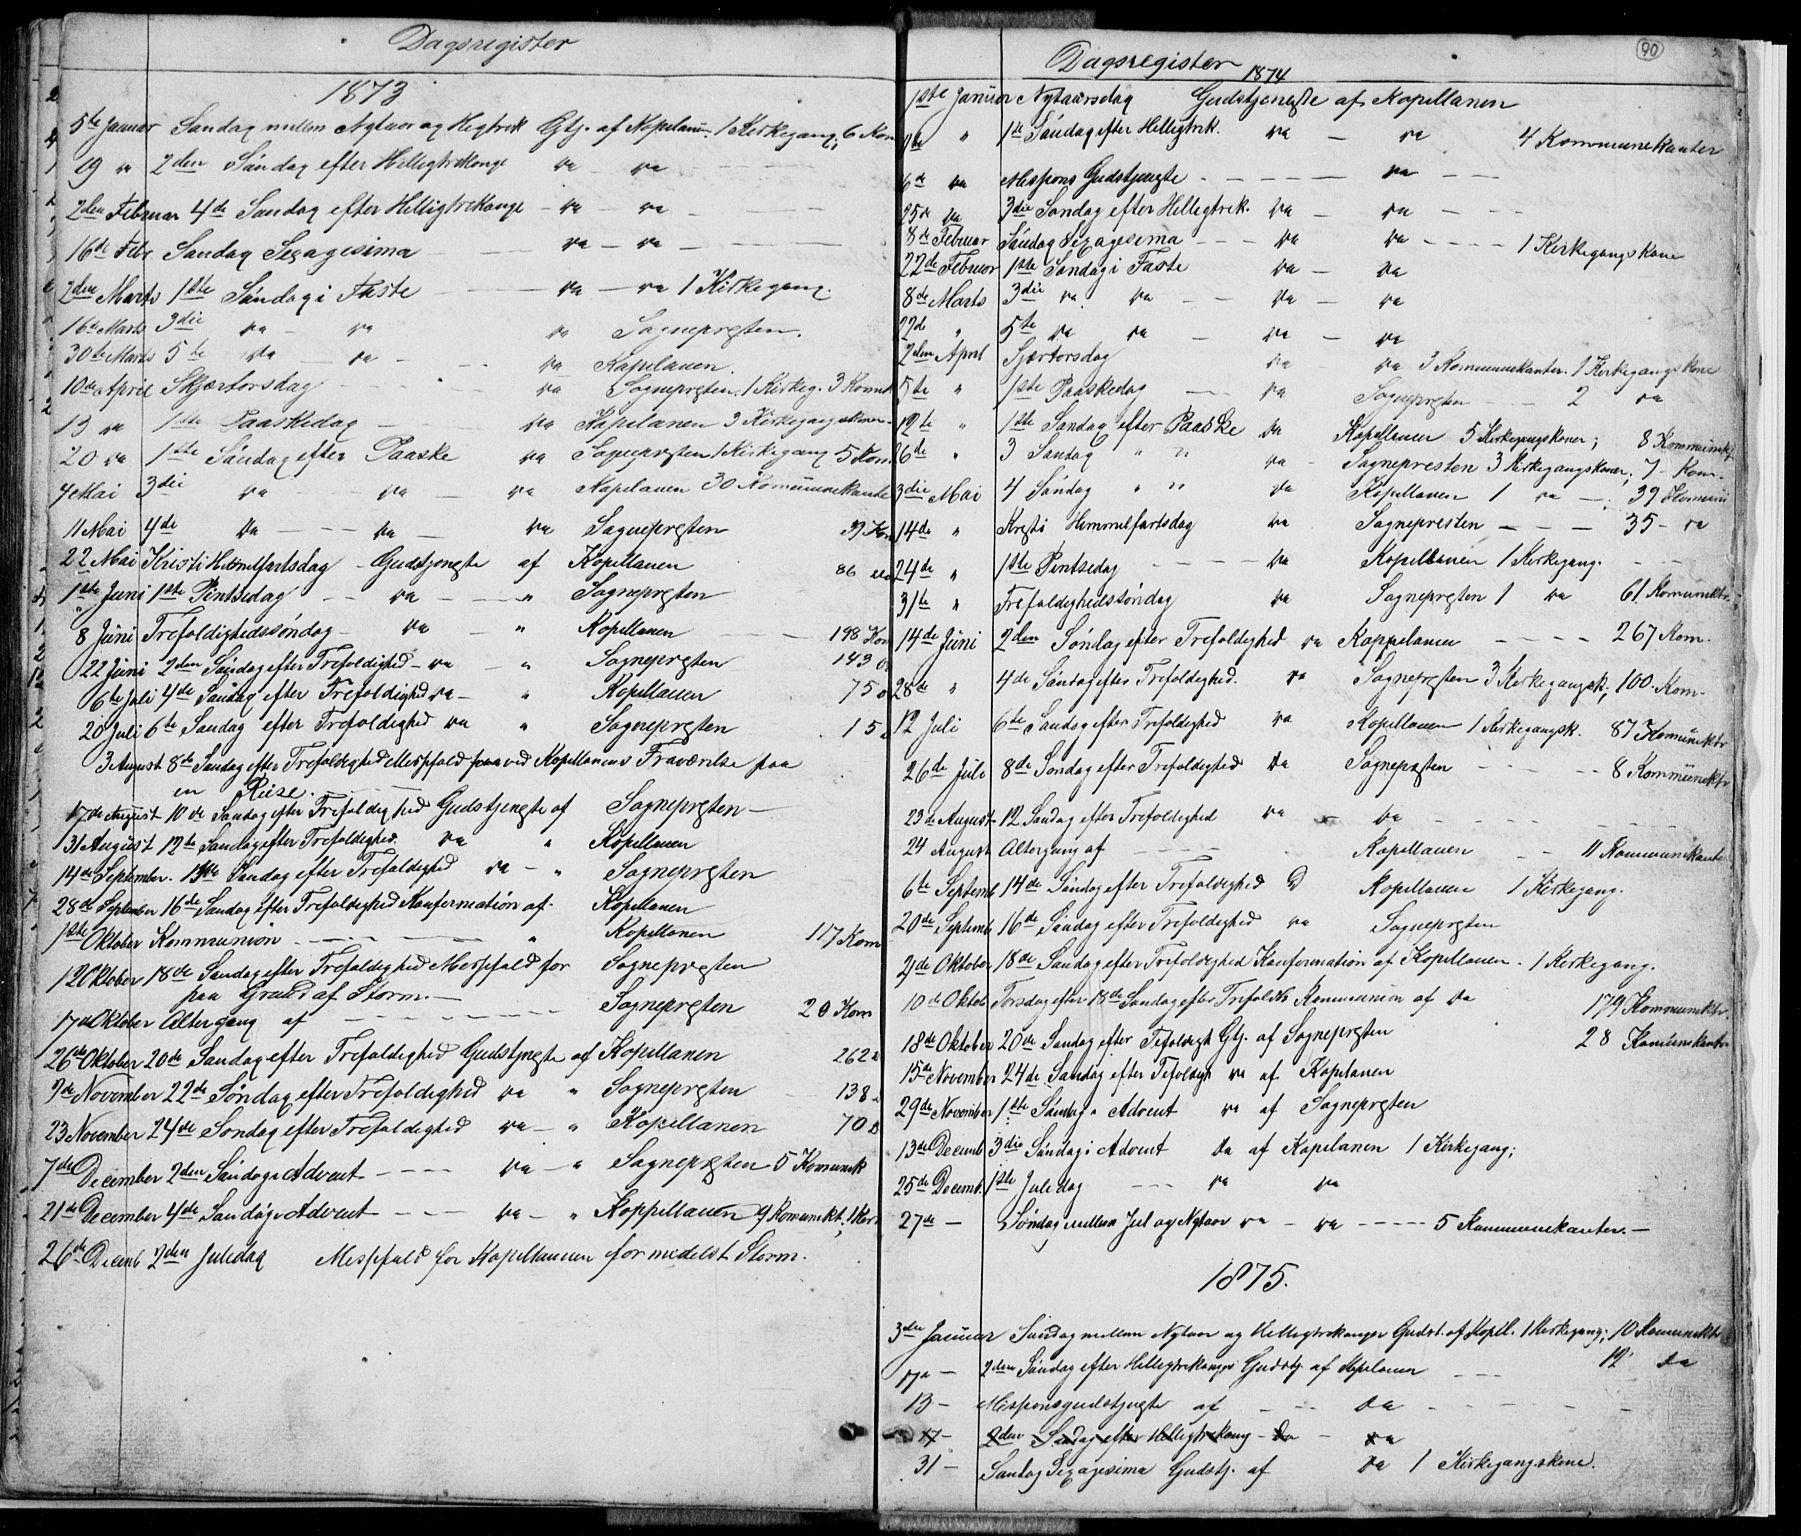 Dagsregister
1873
5te Januar Søndag mellem Nytaar og Hegtrek Gtj. af Kapelan. 1 Kirkegang, 6 Kom
19 " 2den Søndag efter Helligtrekonge da — da
2den Februar 4de Søndag efter Helligtrekonge — da — da —
16de Febr Søndag Sexagesima — da — da —
2den Marts 1ste Søndag i Faste — da — da 1 Kirkegang.
16de Marts 3die da — da da Sognepresten.
30te Marts 5te da — da — da Kapelanen.
10de April Skjærtorsdag da Sognepresten. 1 Kirkeg. 3 Komm
13 da 1ste Paaskedag — da Kapelanen 3 Kirkegangskoner
20 da 1ste Søndag efter Paaske da Sognepresten 1 Kirkegang 5 Kom
4 Mai 3die da — da — da Kapelanen 30 Kommunekante
11 Mai 4de da — da — da Sognepresten 39 Kom
22 Mai Kristi Himmelfartsdag — Gudstjeneste af Kapellanen 86 da
1ste Juni 1ste Pintsedag — da — " Sognepresten
8 Juni Trefoldighedssøndag — da — " Kapellanen — 198 Kom
22 Juni 2den Søndag efter Trefoldighed — da — " Sognepresten 143
6te Juli 4de Søndag efter Trefoldighed da — " Kapellanen 75
20 Juli 6te Søndag efter Trefoldighed da " Sognepresten 15
3 August 8de Søndag efter Trefoldighed Messfald ved Kapellanens Fraværelse paa
en Reise.
17de August 10de Søndag efter Trefoldighed Gudstjeneste af Sognepresten —
31 August 12te Søndag efter Trefoldighed. da " Kapellanen
14de September. Søndag efter Trefoldighed da — " Sognepresten
28de September 16de Søndag efter Trefoldighed Konfermation af Kapellanen
1ste Oktober Kommunion — — " Kapellanen 117 Kom
12 Oktober 18de Søndag efter Trefoldighed Messfald for Sognepresten
paa Grund af Storm. —
17de Oktober Altergang af — — Sognepresten 20 Kom
26de Oktober 20de Søndag efter Trefoldighed Gudstjeneste af Kapellanen 262
9de November 22de Søndag efter Trefoldighed da " Sognepresten — 138
23 November 24de Søndag efter Trefoldighed da — " Kapellanen 70
7de December 2den Søndag i Advent — — da — " Sognepresten 5 Komunik
21de December 4de Søndag i Advent — — da — " Koppellanen 9 Komunikt, 1 Kirk
26de Decemb 2den Juledag Messfald for Kapellanen formedelst Storm.
90
Dagsregister
1874
1ste Januar Nytaarsdag Gudstjeneste af Kapellanen
" 1ste Søndag efter Helligtrek. da — da 4 Kommunekanter
6de da Missjons Gudstjeneste — — da — —
25de da 3die Søndag efter Helligtrek. da — da — —
8de Februar Søndag Sexagesima — da da — — 1 Kirkegangskone
22de Februar 1ste Søndag i Faste da — da
8de Marts 3die da da — — da — da
22de " 5te da da — da — da
2den April Sjærtorsdag da — da 3 Kommunekanter. 1 Kirkegangskone
5te " 1ste Paaskedag — da Sognepresten — 2 da
12te " 1ste Søndag efter Paaske da Kapellanen 5 Kirkegangskoner; 8 Kommunkt
26de " 3 Søndag " " da — Sognepresten 3 Kirkegangskoner; 7 Kom.
3die Mai 4 Søndag " " da Kapellanen 1 da — 39 Komuni
14de " Kristi Himmelfartsdag da Sognepresten — — 35 — da
24de " 1ste Pintsedag — — da Kapellanen 1 Kirkegang.
31te " Trefoldighedssøndag da Sognepresten 1 da 61 Komunikt
14de Juni 2den Søndag efter Trefoldighed da Kappelanen — — 267 Kom.
28de " 4de Søndag efter Trefoldighed. da Sognepresten 3 Kirkegangsk; 100 Kom.
12 Juli 6te Søndag efter Trefoldighed da Kapellanen 1 Kirkegangsk. 87 Komunikt
26de Juli 8de Søndag efter Trefoldighed da Sognepresten — — 8 Kommunikt
23de August 12 Søndag efter Trefoldighed da — da
24 August Altergang af — — Kapellanen — 11 Kommunekanter
6te Septemb 14de Søndag efter Trefoldighed D Kapellanen 1 Kirkegang.
20de Septemb 16de Søndag efter Trefoldighed da Sognepresten
Oktober 18de Søndag efter Trefoldighed Konfermation af Kapellanen. 1 Kirkegang.
10de Oktob. Torsdag efter 18de Søndag efter Trefoldhs Kommunion af da 179 Kommunikt
18de Oktober 20de Søndag efter Trefoldigh Gtj. af Sognepresten 28 Komunekanter
15de November 24de Søndag efter Trefoldigh da af Kapelanen
29de November 1ste Søndag i Advent da af Sognepresten
13de Decemb 3die Søndag i Advent da af Kapelanen 1 Kirkegang;
25de Decemb. 1ste Juledag — da da
27de — Søndag mellem Jul og Nytaar da — da — — 5 Kommunekanter. —
1875.
3die Januar Søndag mellem Nytaar og Helligtrekonger Gudst. af Kapll. 1 Kirkegang; 10 Komunikt
2den Søndag efter Helligtrekonger Gudstj. af Kapelanen 12 da
13 — Missjonsgudstjeneste af — — da — —
17 — 2den Søndag efter Helligtrekong — da — da
31 — Søndag Sexagesima Gudstj. af da 1 Kirkegangskone.